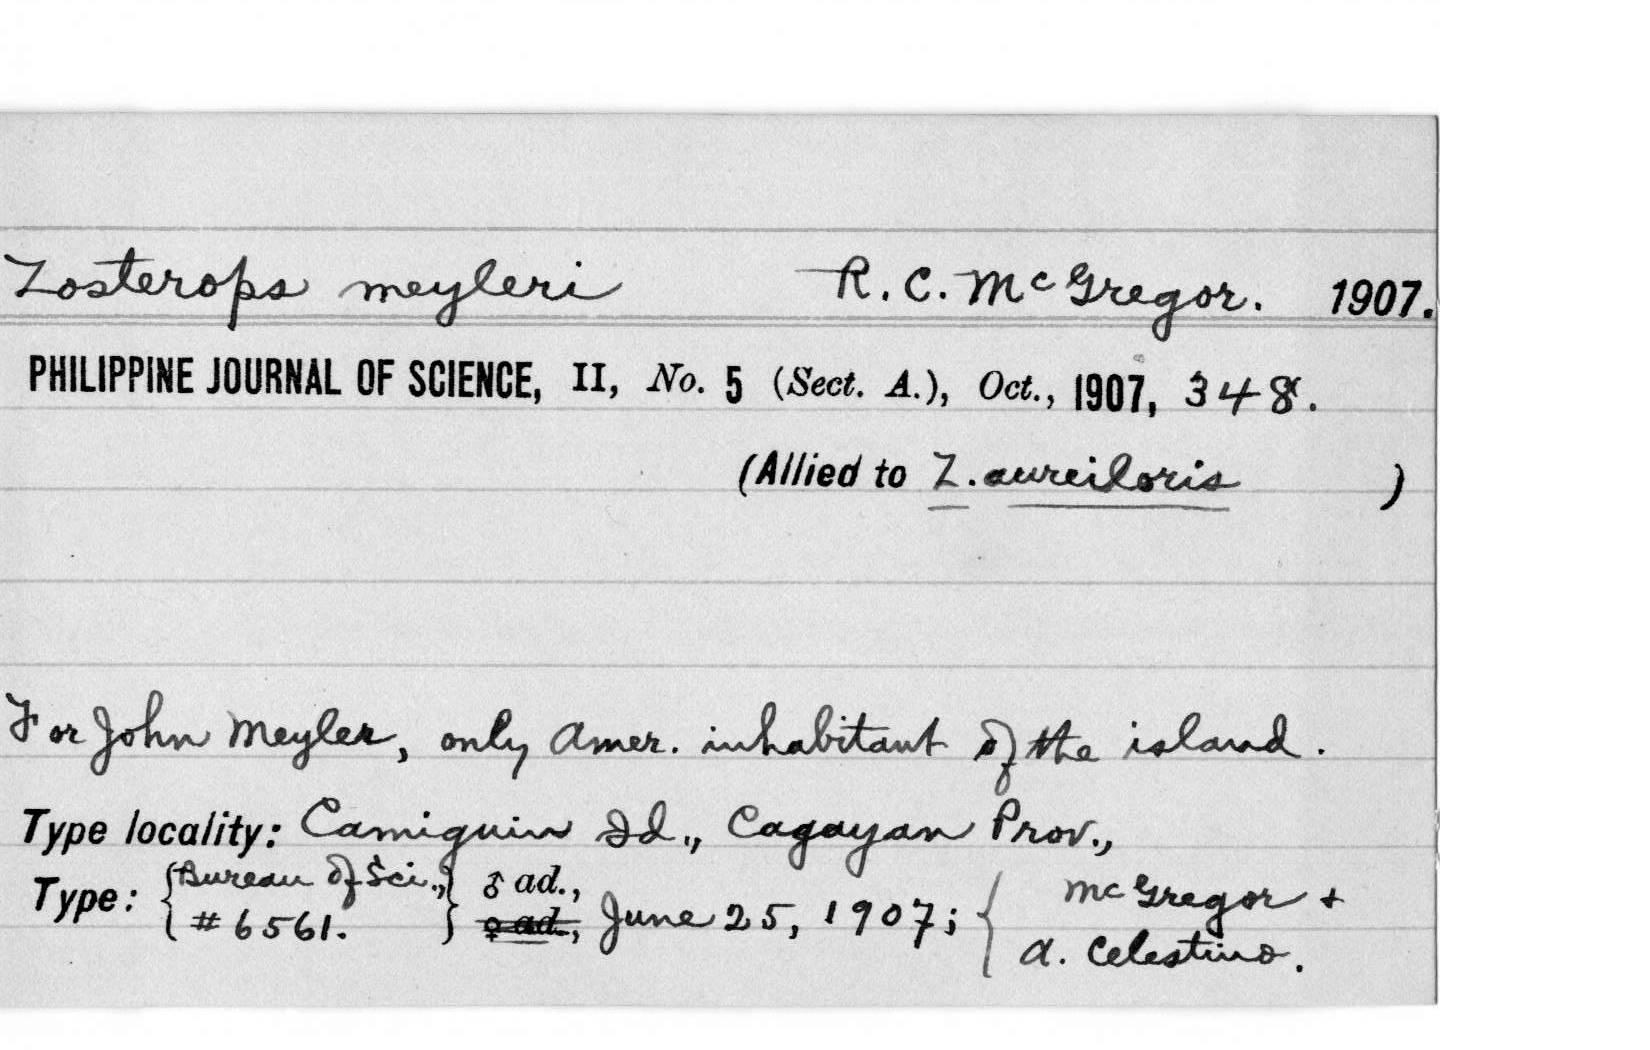 Zosterops meyleri R. C. McGregor. 1907.
PHILIPPINE JOURNAL OF SCIENCE, II, No. 5 (Sect. A.), Oct., 1907, 348.
(Allied to Z. aureiloris )
For John Meyler, only Amer. inhabitant of the island.
Type locality: Camiguin Id., Cagayan Prov.,
Type: {Bureau of Sci., #6561.} ♂ ad., ♀ ad., June 25, 1907; {McGregor + A. Celestino.